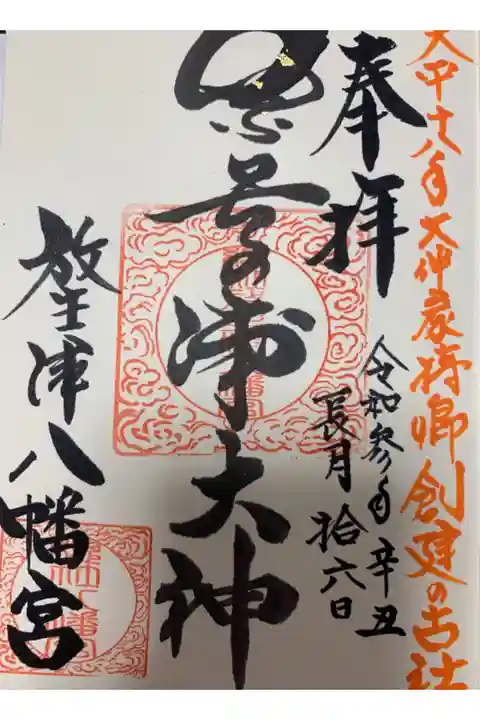 天平十八年大伴家持卿創建の古社
奉拝
令和参年辛丑
長月拾六日
奈呉の浦大神
放生津八幡宮